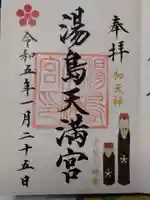 奉拝
初天神
湯島天満宮
令和五年一月二十五日